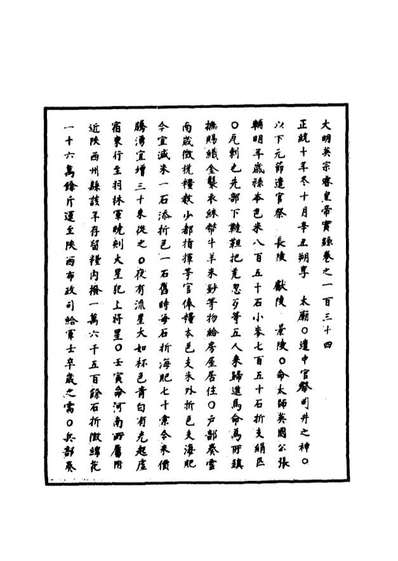 大明英宗睿皇帝實錄卷之一百三十四
正統十年冬十月辛丑朔享　太廟○遣中官祭司井之神○
以下元節遣官祭　長陵　獻陵　景陵○命太師英國公張
輔明年歲祿本色米八百五十石小麥七百五十石折支絹疋
○瓦剌也先部下韃靼把禿忽歹等五人來歸進馬命為所鎮
撫賜紙金襲衣綵幣牛羊米鈔等物給房屋居住○戶部奏雲
南歲徵稅糧數少都指揮等官俸糧本色支米外折色支海肥
今宜減米一石添折色一石舊時每石折海肥七十索今米價
騰湧宜增三十索從之○夜有流星大如杯色青白有光起虛
宿東行至羽林軍曉刻火星犯上將星○壬寅命河南所屬附
近陝西州縣該年存留糧內撥一萬六千五百餘石折徵綿花
一十六萬餘斤運至陝西布政司給軍士卒歲之需○兵部奏